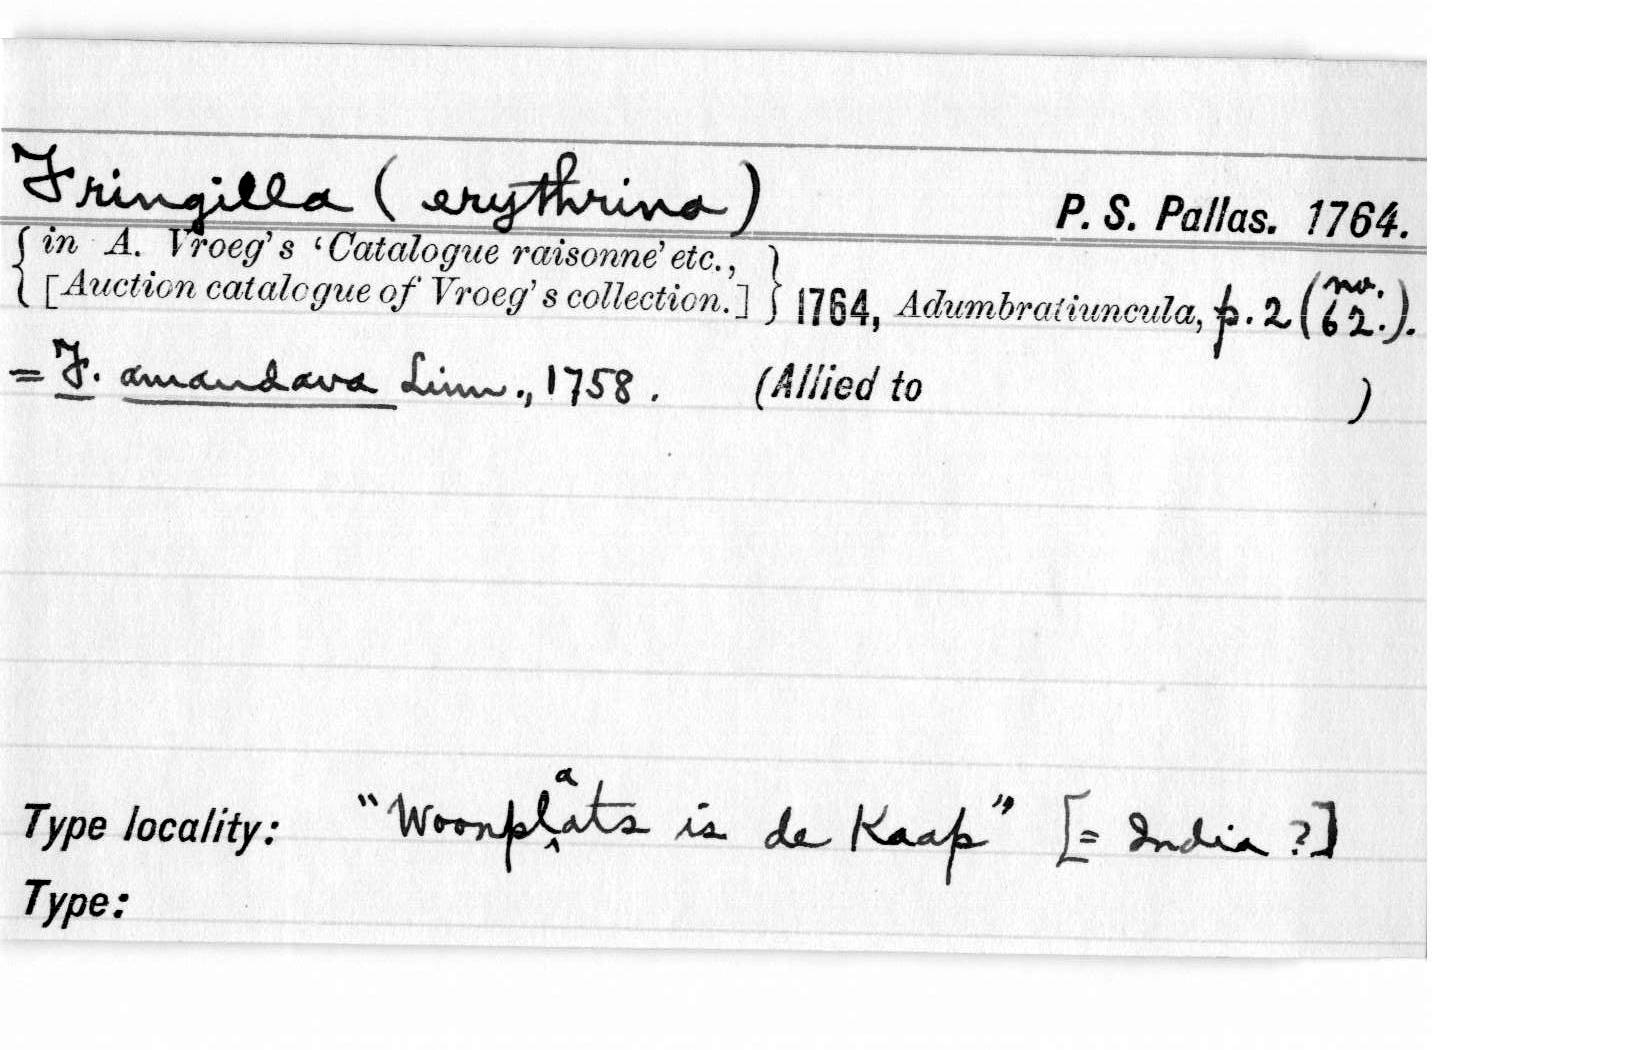 Fringilla (erythrina) P. S. Pallas. 1764.
{ in A. Vroeg's 'Catalogue raisonne' etc.,
[Auction catalogue of Vroeg's collection.] } 1764, Adumbratiuncula, p. 2 (no. 62.).
= F. amandava Linn., 1758. (Allied to )
Type locality: "Woonplaats is de Kaap" [= India ?]
Type: